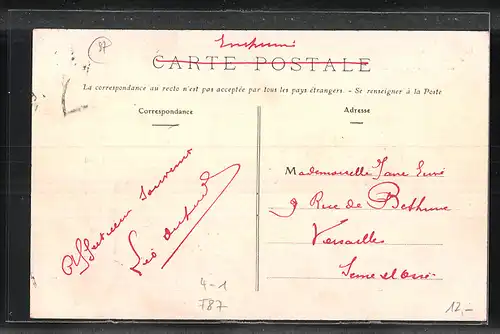 87
Imprimé
CARTE POSTALE
La correspondance au recto n'est pas acceptée par tous les pays étrangers. - Se renseigner à la Poste
Correspondance
Adresse
Affectueux souvenir
Léo
Mademoiselle Jane
9 Rue de Béthune
Versailles
Seine et Oise
4-1
T87
12,-